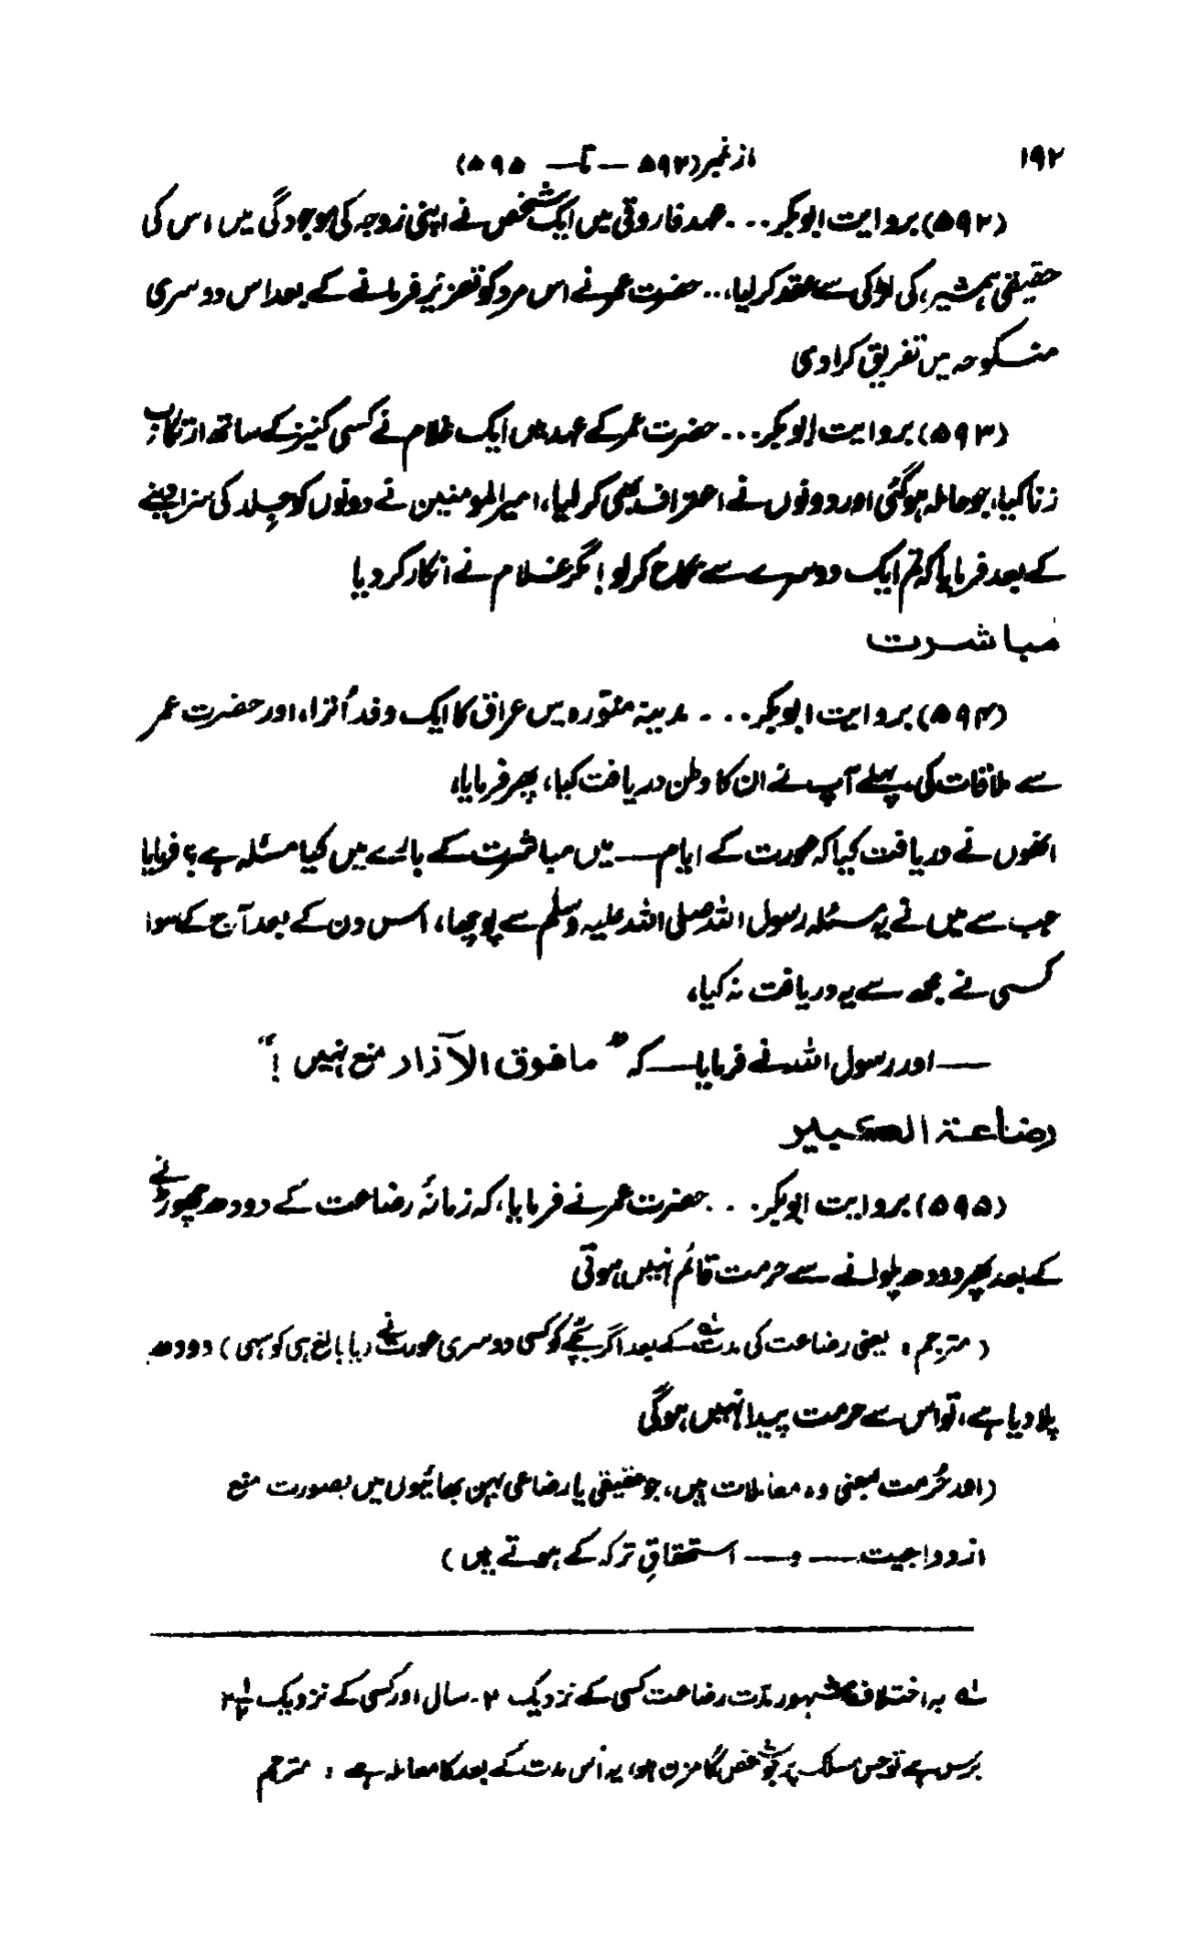 ۱۹۲
از نمبر (۵۹۲ — تا — ۵۹۵)
(۵۹۲) بروایت ابوبکر... عہد فاروقی میں ایک شخص نے اپنی زوجہ کی موجودگی میں اس کی
حقیقی ہمشیر کی لڑکی سے عقد کر لیا،.. حضرت عمر نے اس مرد کو تعزیر فرمانے کے بعد اس دوسری
منکوحہ میں تفریق کرا دی
(۵۹۳) بروایت ابوبکر... حضرت عمر کے عہد میں ایک غلام نے کسی کنیز کے ساتھ ارتکاب
زنا کیا، جو حاملہ ہو گئی اور دونوں نے اعتراف بھی کر لیا، امیر المومنین نے دونوں کو جلد کی سزا دینے
کے بعد فرمایا کہ تم ایک دوسرے سے نکاح کر لو! مگر غلام نے انکار کر دیا
مباشرت
(۵۹۴) بروایت ابوبکر... مدینہ منورہ میں عراق کا ایک وفد اُترا، اور حضرت عمر
سے ملاقات کی پہلے آپ نے ان کا وطن دریافت کیا، پھر فرمایا،
انھوں نے دریافت کیا کہ عورت کے ایام — میں مباشرت کے بارے میں کیا مسئلہ ہے؟ فرمایا
جب سے میں نے یہ مسئلہ رسول اللہ صلی اللہ علیہ وسلم سے پوچھا، اس دن کے بعد آج کے سوا
کسی نے مجھ سے یہ دریافت نہ کیا،
— اور رسول اللہ نے فرمایا — کہ ”مافوق الآذار منع نہیں!“
رضاعۃ الکبیر
(۵۹۵) بروایت ابوبکر... حضرت عمر نے فرمایا، کہ زمانۂ رضاعت کے دودھ چھوڑنے
کے بعد پھر دودھ پلوانے سے حرمت قائم نہیں ہوتی
(مترجم: یعنی رضاعت کی مدت لہ کے بعد اگر بچے کو کسی دوسری عورت نے (یا بالغ ہی کو سہی) دودھ
پلا دیا ہے، تو اس سے حرمت پیدا نہیں ہوگی
(اور حُرمت بمعنی وہ معاملات ہیں، جو حقیقی یا رضاعی بہن بھائیوں میں بصورت منع
ازدواجیت — و — استحقاقِ ترکہ کے ہوتے ہیں)
لہ بہ اختلاف مشہور مدت رضاعت کسی کے نزدیک ۲۔ سال اور کسی کے نزدیک ۲½
برس ہے تو جس مسلک پر جو شخص گامزن ہو، یہ اُس مدت کے بعد کا معاملہ ہے: مترجم